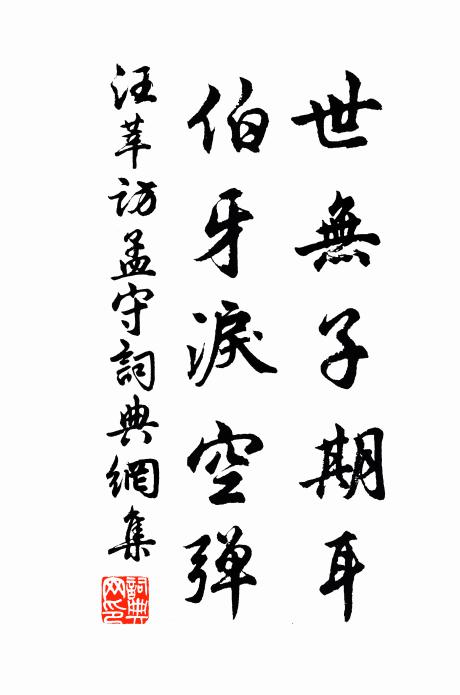 世無子期耳
伯牙淚空彈
汪莘訪孟守詞典網集
詞典網印